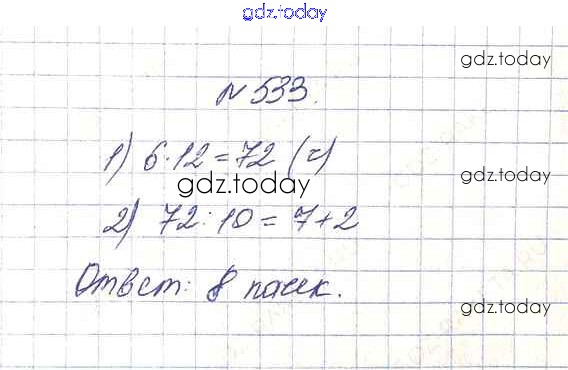 gdz.today
gdz.today
N 533.
1) 6·12=72 (г)
gdz.today
gdz.today
2) 72:10=7+2
Ответ: 8 пачек.
gdz.today